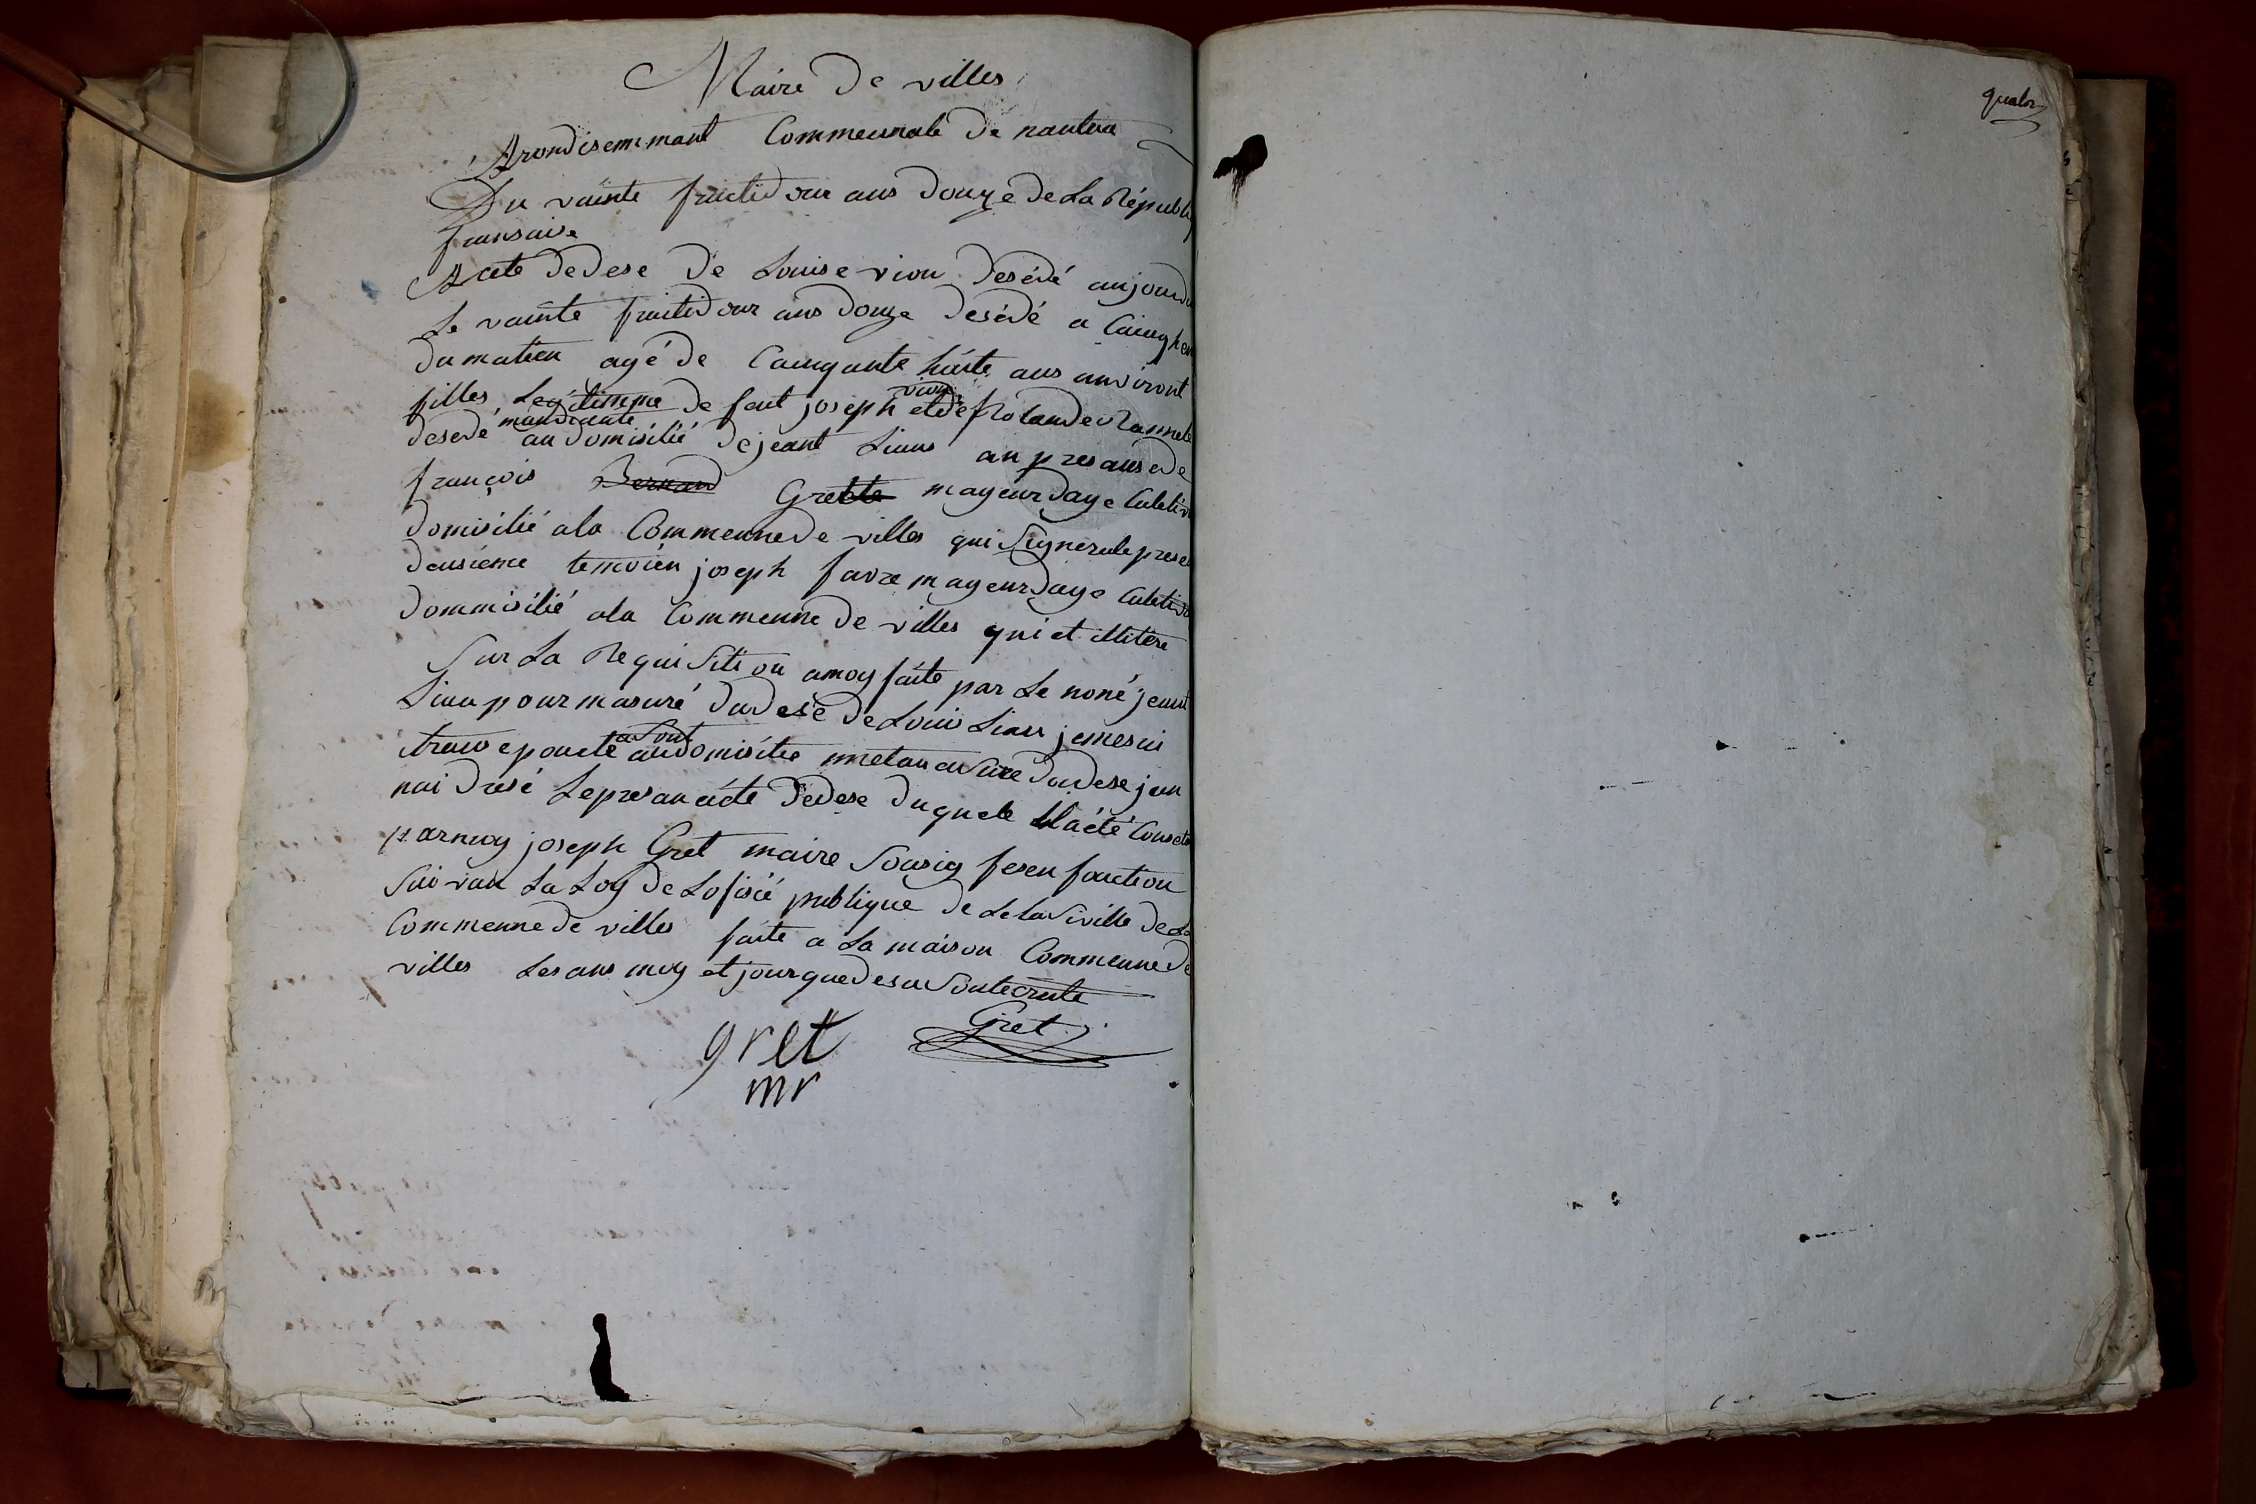 Maire De villes
Arondisemmant Commeunale De nantua
Du vainte fructidour ans douze de La Républi
fransaise
Acte dedese De Louise viou desédé aujourdu
Le vainte fructidour ans douze desédé a Cainq heu
du matien agé de Cainquante huite ans anviront
filles Legitimme de feut joseph viou et de Rolande Ramel
desedé mandiante au domisilié de jeant Liaus an presanse de
françois Bernand Grette mayeur dage Culetiv
domisilié ala Commeune de villes qui Signera le prese
deusieme temoien joseph favre mayeur dage Culetiva
dommisilié ala Commeune de villes qui et illitere
Sur La Requisition a moy faite par Le nomé jeant
Liau pour masuré du desé de Louis Liau je me sui
transeporté a Sont audomisilie metan asuré dudese jen
nai dresé Le presan acte dedese du quele Il a été Conseta
par moy joseph Gret maire Sousig fesen fonction
Suivan La Loy de Lofisié publique de Leta Siville de La
Commeune de villes faite a La maison Commeune de
villes Les ans moy et jour que desu Soutecrite
gret Gret
mr
quator